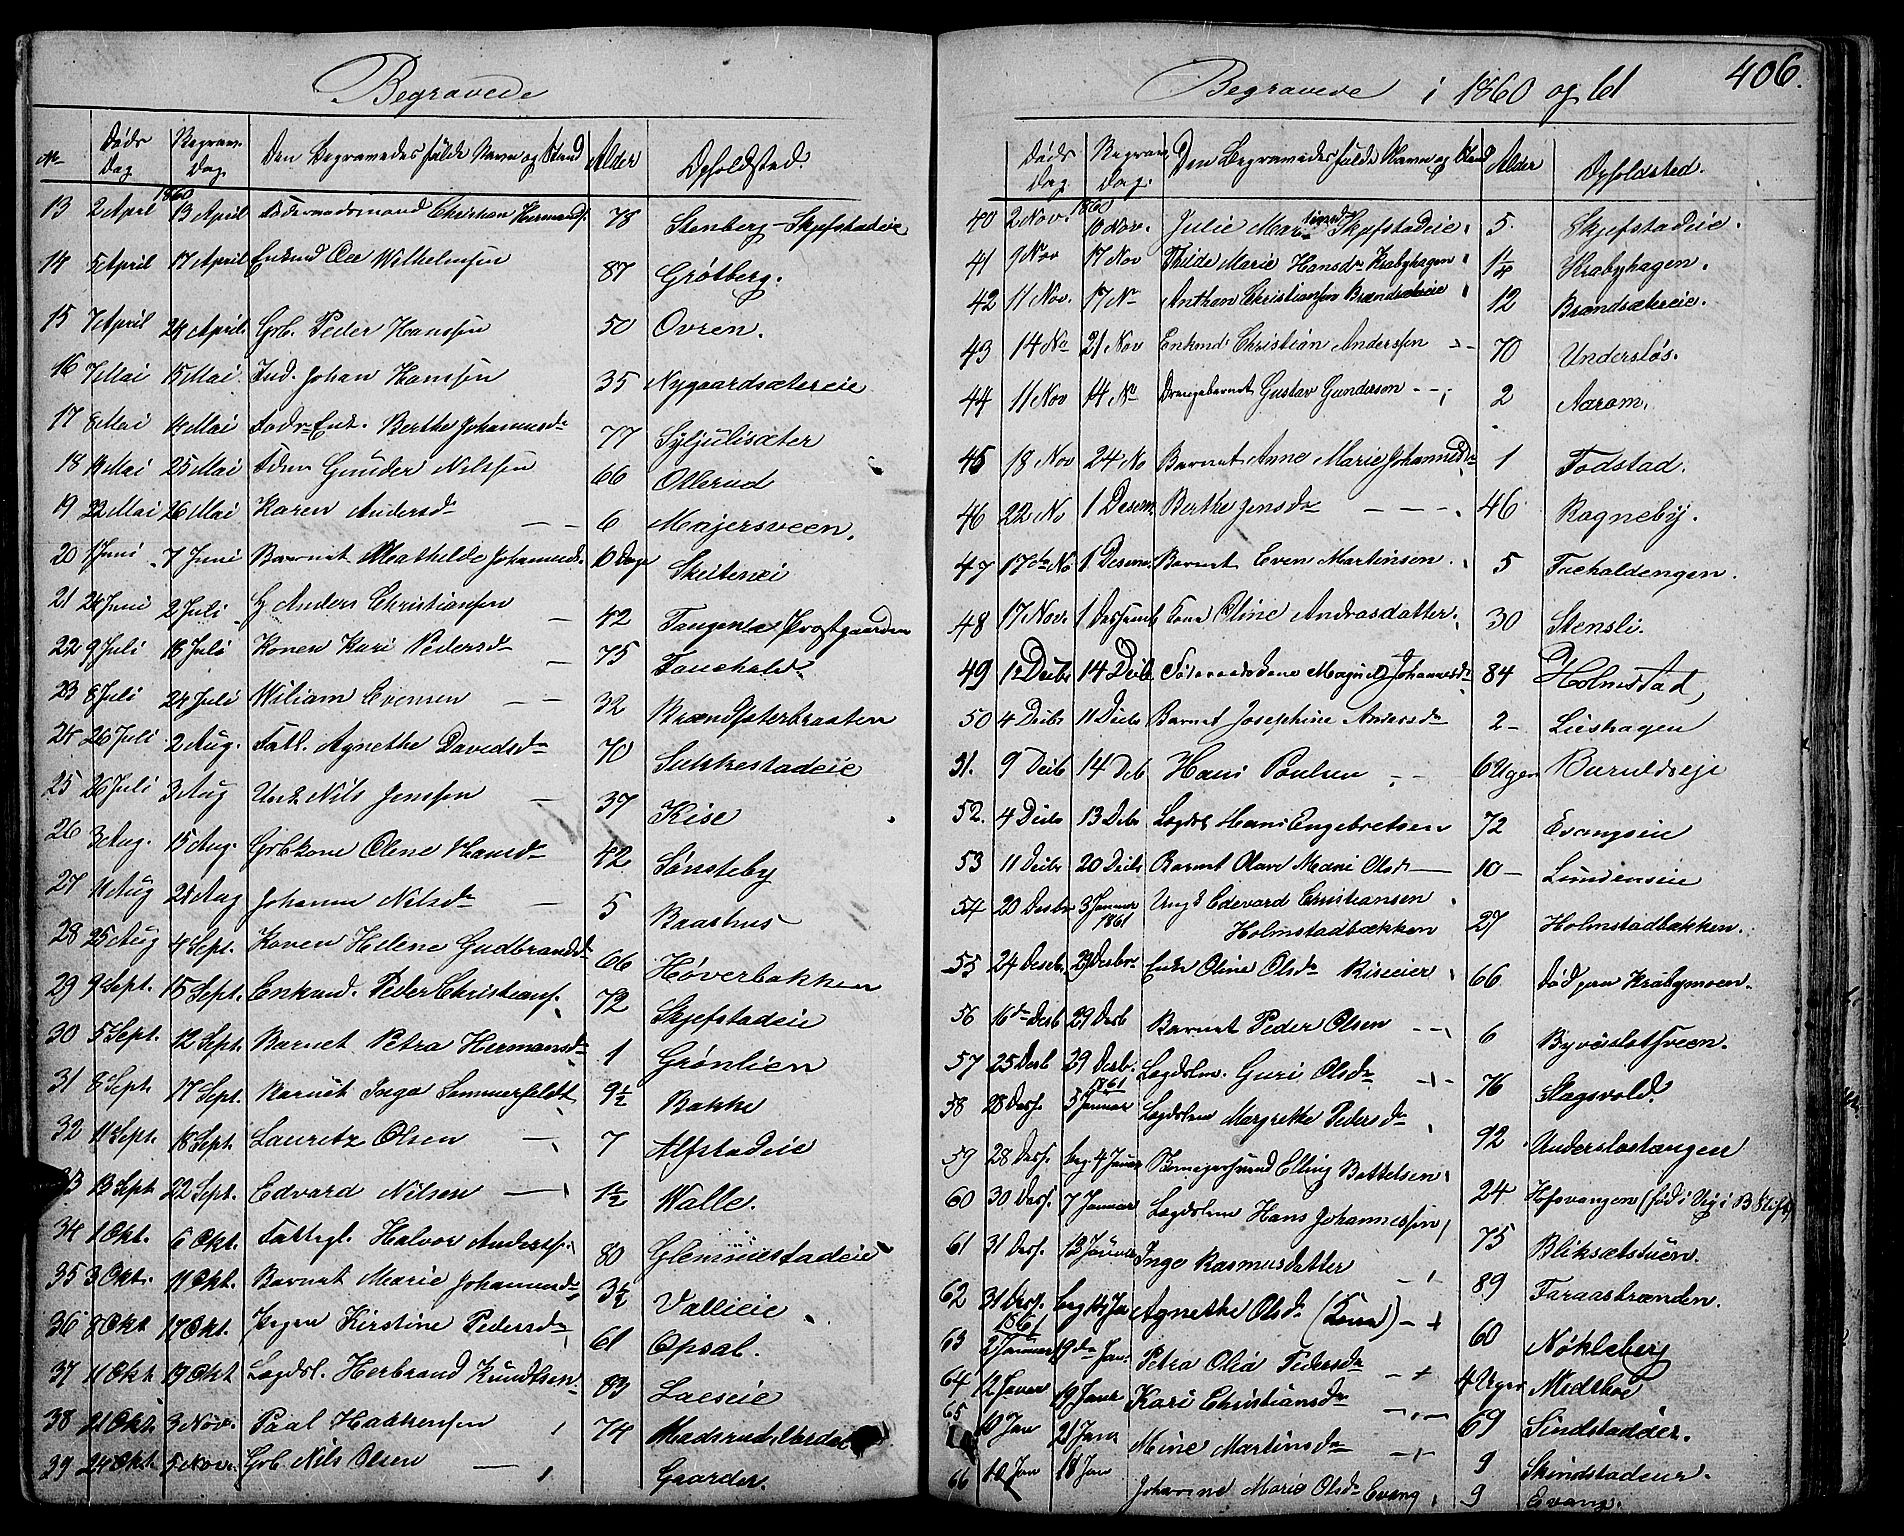 Begravede
No Døds Dag Begrav. Dag Den Begravedes fulde Navn og Stand Alder Opholdsted
1860
13 2 April 13 April Føderaadsmand Christian Hermands. 78 Stenberg-Skjefstadeie
14 5 April 17 April Enkmd Ole Wilhelmsen 87 Grøtberg.
15 7 April 24 April. Grb. Peder Hanssen 50 Ovren.
16 7 Mai 15 Mai. Ind. Johan Hanssen 35 Nygaardsætereie
17 8 Mai 14 Mai Fodr Enk. Berthe Johannesdr 77 Syljulisæter
18 19 Mai 25 Mai Gunder Nilssen 66 Ollerud
19 22 Mai 26 Mai Karen Andersdr 6 Majersveen.
20 1 Juni 7 Juni Barnet Mathilde Johannesd. 10 Dage
21 24 Juni 2 Juli G Anders Christiansen 42 Tangen Prostgaarden
22 9 Juli 18 Juli Konen Kari Pedersdr 75 Tauehald
23 8 Juli 24 Juli Wiliam Evensen 32
24 26 Juli 2 Aug. Fatt. Agnethe Davidsdr 70 Sukkestadeie
25 26 Juli 3 Aug Nils Jenssen 37 Kise
26 3 Aug. 15 Aug. Grbkone Olene Hansdr 42 Sønsteby
27 11 Aug 21 Aug Johanne Nilsdr 5 Baashus
28 25 Aug 4 Sept. Karen Helene Gudbrandsdr 66 Høverbakken
29 9 Sept. 15 Sept. Enkmd. Peder Christians. 72 Skjefstadeie
30 5 Sept. 12 Sept. Barnet Petra Hermansdr 1 Grønlien
31 8 Sept. 17 Sept. Barnet Inga Sommerfeldt 9½ Bakke
32 11 Sept. 18 Sept. Lauritz Olsen 7 Alfstadeie
33 13 Sept 22 Sept. Edvard Nilsen 1½ Walle.
34 1 Okt. 6 Okt. Fattigl. Halvor Anders. 80 Glemmestadeie
35 3 Okt. 11 Okt. Barnet Marie Johannesdr 3½ Vallieie
36 8 Okt 17 Okt. Pigen Kirstine Pedersdr 61 Opsal.
37 11 Okt 19 Okt Lægdsl. Herbrand Knudtsen 83 Laeseie
38 21 Okt. 3 Nov. Paal Haakensen 74
39 24 Okt. 5 Nov. Grb Nils Olsen Gaarder.
Begravede i 1860 og 61 406.
Døds Dag Begrav Dag. Den Begravedes fulde Navn og Stand Alder Opholdsted.
1860
40 2 Nov. 10 Nov. Julie Skjefstadeie. 5. Skjefstadeie.
41 9 Nov 17 Nov Thilde Marie Hansdr Krabyhagen 1¼ Krabyhagen.
42 11 Nov. 17 No Anthon Christiansen Brændsætreie 12 Brændsætreie.
43 14 No 21 Nov Enkmd. Christian Anderssen 70 Undersløs.
44 11 Nov 14 No Drengebarnet Gustav Gundersen 2 Aarom.
45 18 Nov 24 No Barnet Anne Marie Johannesdr 1 Todstad.
46 22 No 1 Desem Berthe Jensdr 46 Ragneby.
47 17de No 1 Desem. Barnet Even Martinsen 5
48 17 Nov. 1 Kone Oline Andrasdatter. 30 Stensli.
49 12 Decbr 14 Decb Magnild Johannesdr 84 Holmstad
50 4 Decbr 11 Decbr Barnet Josephine Andersdr 2 Lieshagen
51. 9 Decbr 14 Deb Hans Poulsen 6 Uger
52. 4 Decbr 13 Debr Lægdsl Hans Engebretsen 72 Evangseie
53 11 Decbr 20 Decbr Barnet Olave Marie Olsdr 10 Lundenseie
54 20 Desbr 3 Januar 1861 Ungk Edevard Christiansen
Holmstadbækken 27 Holmstadbækken.
55 24 Desbr. 29 Desbr Enke Oline Olsdr Riseeier 66 Død paa Krabymoen.
56 16de Desb 29 Desb Barnet Peder Olsen 6
57 25 Desb 29 Desb. Lægdslm. Guri Olsdr 76 Slagsvold.
1861
58 28 Des. 5 Januar Lægdslm Margrethe Pedersdr 92 Underslostangen
59 28 Des. beg 4 Januar Elling Bottelsen 24
60 30 Des. 7 Januar Lægdslm Hans Johannessen 75
61 31 Des. 12 Januar Inge Rasmusdatter 89 Faraasbrænden.
62 31 Des. beg 14 Ja Agnethe Olsdr (Kone) 60 Nøkleberg
1861
63 2 Januar 19de Jan. Petra Olia Pedersdr 4 Uger Midthoe
64 12 Januar 19 Janr Kari Christiansdr 69 Sindstadeier.
65 10 Jan 21 Janr Mine Martinsdr 9 Skindstadeier.
66 10 Jan 18 Jan Johanne Marie Olsdr Evang 9 Evang.